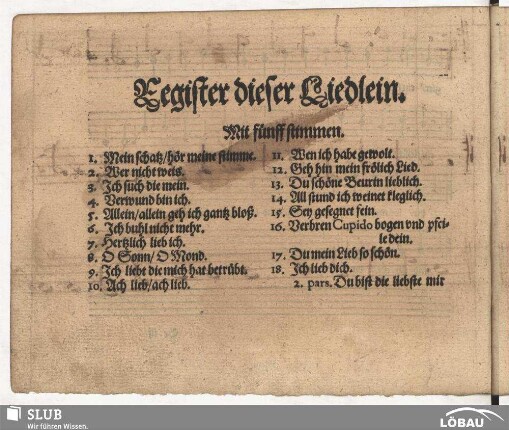 Register dieser Liedlein.
Mit fünff stimmen.
1. Mein schatz/hör meine stimme.
2. Wer nicht weis.
3. Ich such die mein.
4. Verwund bin ich.
5. Allein/allein geh ich gantz bloß.
6. Ich buhl nicht mehr.
7. Hertzlich lieb ich.
8. O Sonn/O Mond.
9. Ich liebe die mich hat betrübt.
10. Ach lieb/ach lieb.
11. Wen ich habe gewolt.
12. Geh hin mein frölich Lied.
13. Du schöne Beurin lieblich.
14. All stund ich weinet kleglich.
15. Sey gesegnet fein.
16. Verbren Cupido bogen vnd pfei-
le dein.
17. Du mein Lieb so schön.
18. Ich lieb dich.
2. pars. Du bist die liebste mir
SLUB
Wir führen Wissen.
LÖBAU